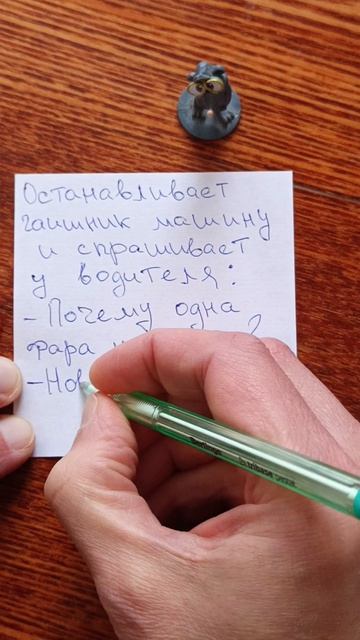 Останавливает
гаишник машину
и спрашивает
у водителя:
- Почему одна
фара ?
- Нов